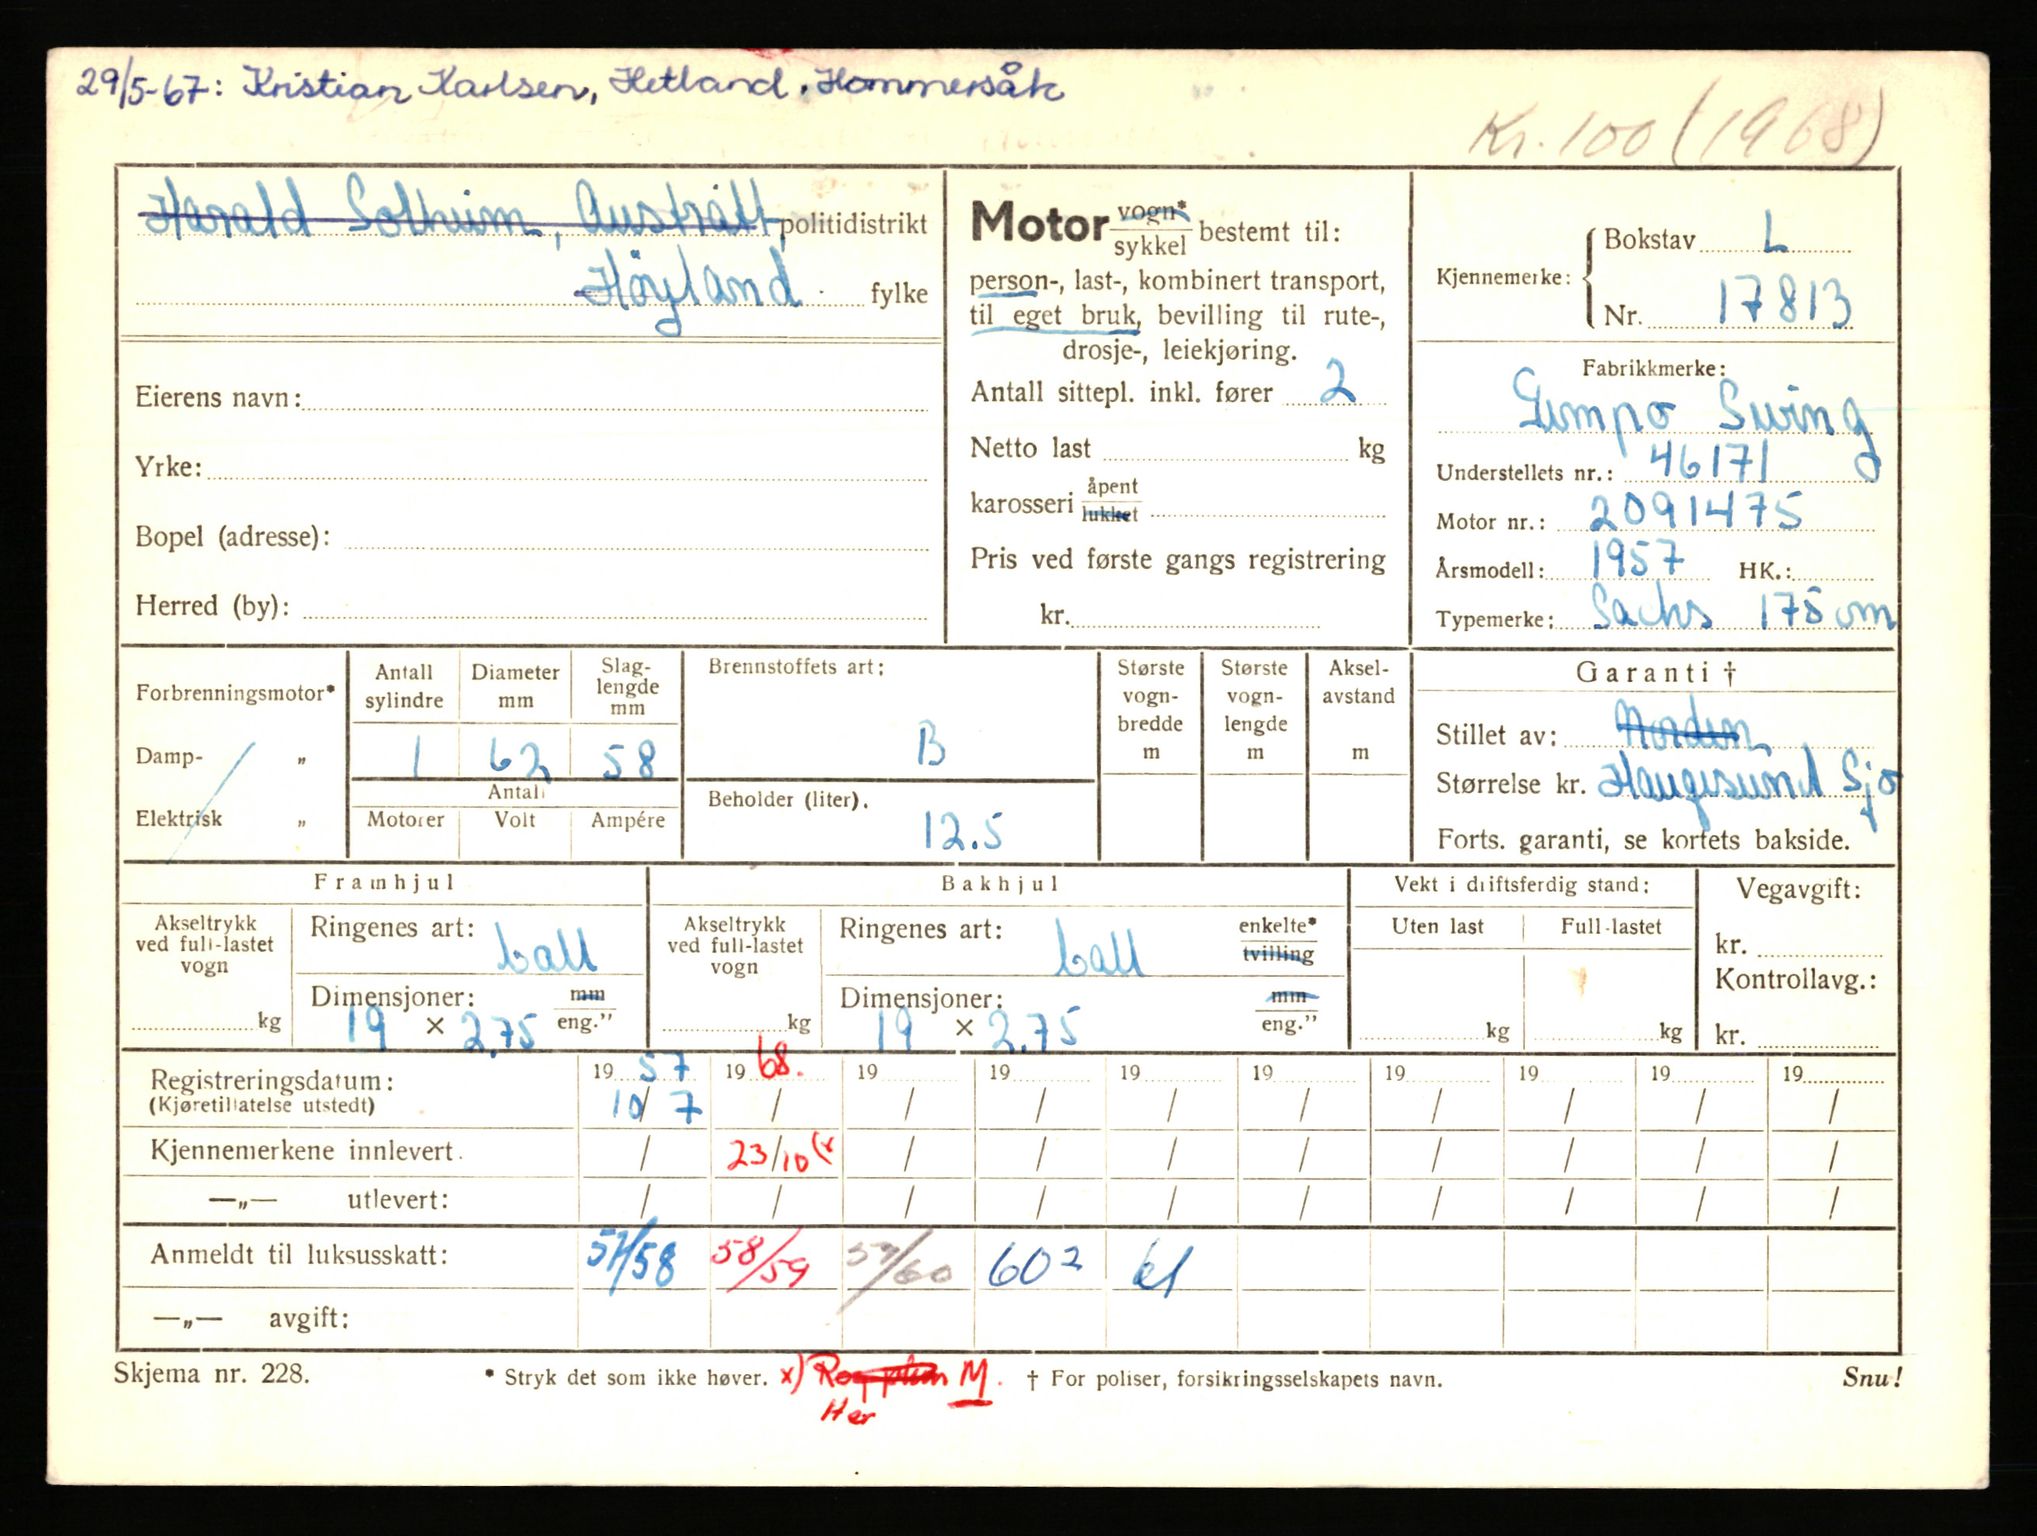 29/5-67: Kristian Karlsen, Hetland, Hommersåk
Kr. 100 (1968)
Harald Solheim, Austrått, politidistrikt
Høyland fylke
Eierens navn:
Yrke:
Bopel (adresse):
Herred (by):
Motor vogn* sykkel bestemt til:
person-, last-, kombinert transport,
til eget bruk, bevilling til rute-,
drosje-, leiekjøring.
Antall sittepl. inkl. fører 2
Netto last kg
karosseri åpent lukket
Pris ved første gangs registrering
kr.
Kjennemerke:
Bokstav L
Nr. 17813
Fabrikkmerke:
Gumpo Swing
Understellets nr.: 46171
Motor nr.: 2091475
Årsmodell: 1957 HK.:
Typemerke: Sachs 175 cm
Forbrenningsmotor*
Damp- „
Elektrisk „
Antall sylindre
Diameter mm
Slag-lengde mm
1 62 58
Antall
Motorer Volt Ampére
Brennstoffets art:
B
Beholder (liter).
12.5
Største vogn-bredde m
Største vogn-lengde m
Aksel-avstand m
Garanti †
Stillet av: Norden
Størrelse kr. Haugesund Sjø
Forts. garanti, se kortets bakside.
Framhjul
Akseltrykk ved full-lastet vogn
kg
Ringenes art: ball
Dimensjoner: mm eng."
19 × 2.75
Bakhjul
Akseltrykk ved full-lastet vogn
kg
Ringenes art: ball enkelte* tvilling
Dimensjoner: mm eng."
19 × 2.75
Vekt i driftsferdig stand:
Uten last Full-lastet
kg kg
Vegavgift:
kr.
Kontrollavg.:
kr.
Registreringsdatum: 19 57 19 68. 19 19 19 19 19 19 19 19
(Kjøretillatelse utstedt) 10/7 / / / / / / / / /
Kjennemerkene innlevert. / 23/10 (x / / / / / / / /
—„— utlevert: / / / / / / / / / /
Anmeldt til luksusskatt: 57/58 58/59 59/60 60² 61
—„— avgift:
Skjema nr. 228. * Stryk det som ikke høver. x) M. † For poliser, forsikringsselskapets navn. Snu!
Her